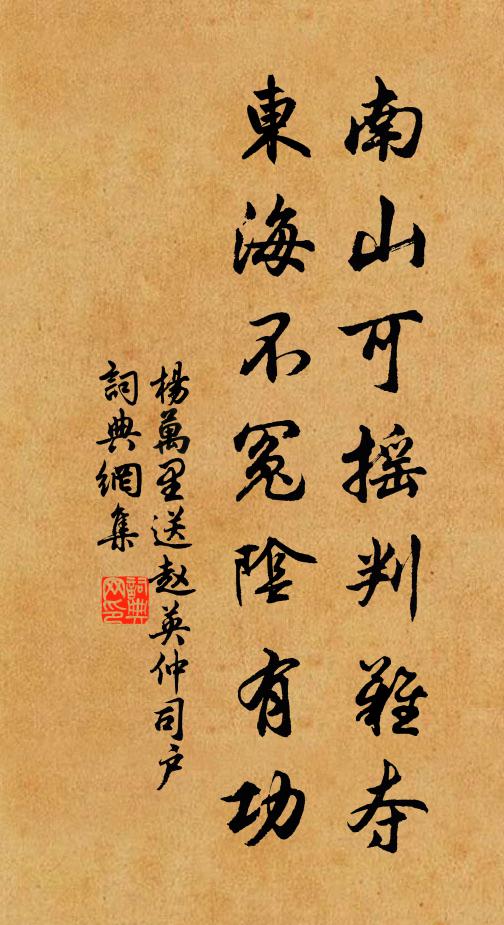 南山可摇判难夺
東海不冤陰有功
楊萬里送赵英仲司户
詞典網集
詞典網印